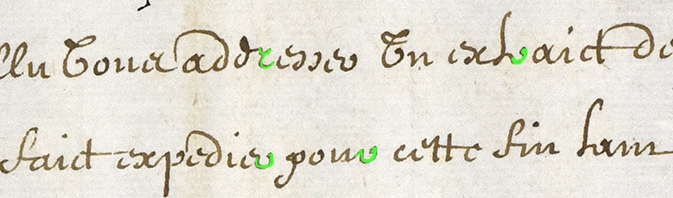 llu vous addresser Un extraict de
faict expedier pour cette fin sam